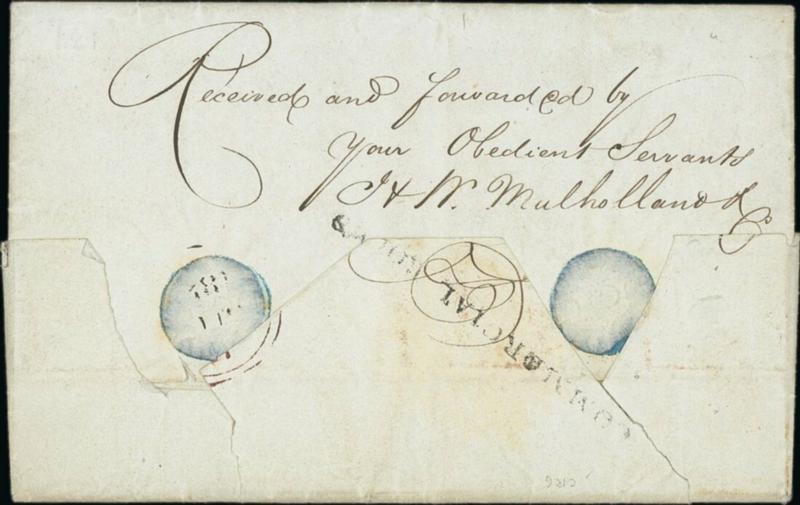 Received and forwarded by
your Obedient Servants
J & W. Mulholland & Co
COMMERCIAL ROOMS